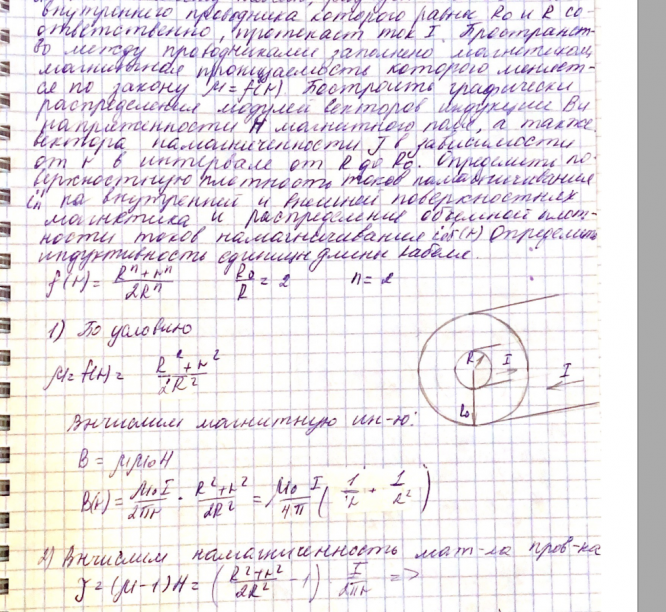 внутреннего проводника которого равны R₀ и R со-
ответственно, протекает ток I. Пространст-
во между проводниками заполнено магнетиком,
магнитная проницаемость которого меняет-
ся по закону μ = f(r). Построить графически
распределения модулей векторов индукции B и
напряженности H магнитного поля, а также
вектора намагниченности J в зависимости
от r в интервале от R до R₀. Определить по-
верхностную плотность токов намагничивания
на внутренней и внешней поверхностях
магнетика и распределение объемной плот-
ности токов намагничивания (r) Определить
индуктивность единицы длины кабеля.
f(r) = (Rⁿ + rⁿ)/(2Rⁿ) R₀/R = 2 n = 2
1) По условию
R I I
μ = f(r) = (R² + r²)/(2R²)
Вычислим магнитную ин-ю:
B = μμ₀H
B(r) = μ₀I/(2πr) · (R² + r²)/(2R²) = μ₀I/(4π) (1/r + 1/R²)
2) Вычислим намагниченность мат-ла пров-ка
J = (μ-1)H = ((R² + r²)/(2R²) - 1) I/(2πr) =>